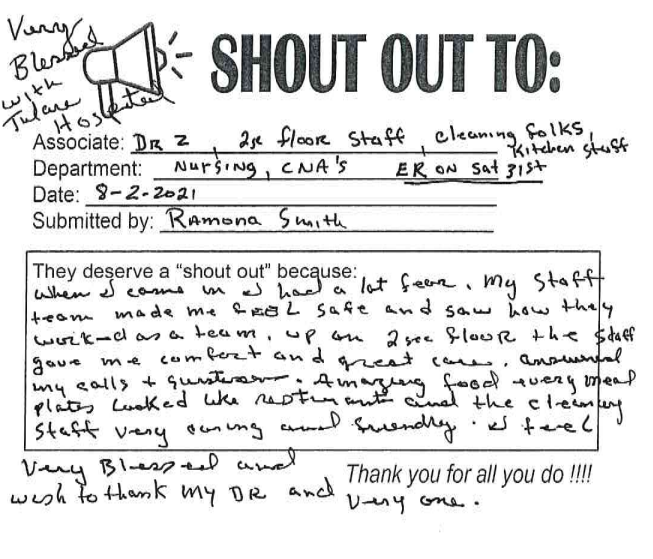 Very
Blessed
with
Tulare
Hospital
SHOUT OUT TO:
Associate: DR Z, 2sc floor Staff, cleaning folks,
Kitchen staff
Department: Nursing, CNA's ER ON Sat 31st
Date: 8-2-2021
Submitted by: Ramona Smith
They deserve a "shout out" because:
when I came in I had a lot fear. My Staff
team made me FEEL Safe and saw how they
worked as a team. up on 2sec floor the staff
gave me comfort and great care. answered
my calls + questions. Amazing food every meal
plates looked like resturant and the cleaning
Staff very caring and friendly. I feel
Very Blessed and
wish to thank my DR and very one.
Thank you for all you do !!!!